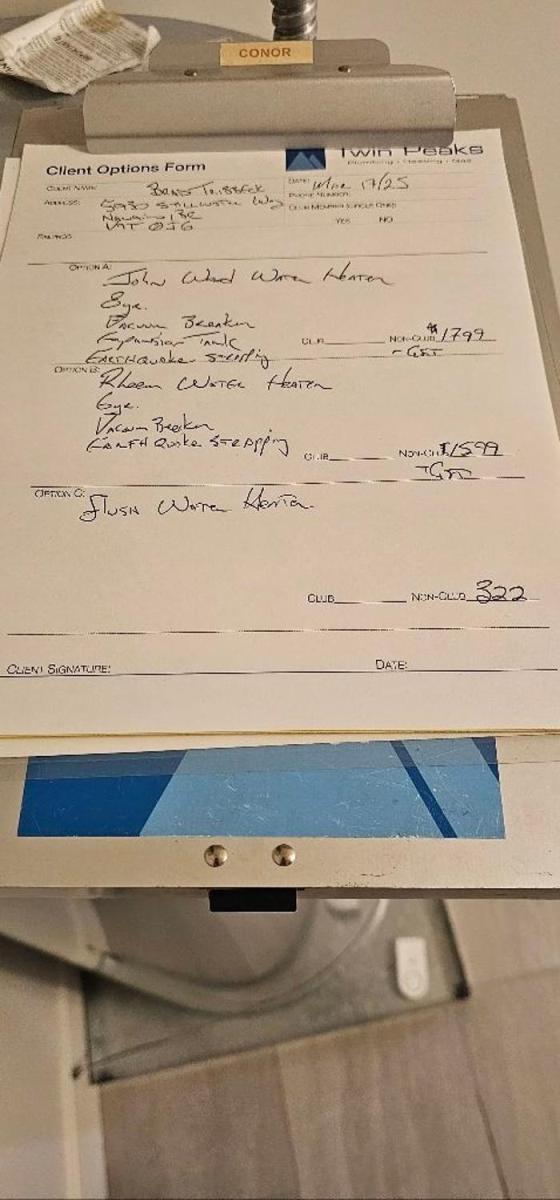 CONOR
Twin Peaks
Plumbing • Heating • Gas
Client Options Form
CLIENT NAME:
DATE: Mar 17/25
ADDRESS: 5930 Stillwater Way
PHONE NUMBER:
Nanaimo BC
CLUB MEMBER (CIRCLE ONE)
V9T 0J6
YES NO
OPTION A:
John Wood Water Heater
8yr.
Vacuum Breaker
Expansion Tank
CLUB NON-CLUB $1799
Earthquake Strapping
+GST
OPTION B:
Rheem Water Heater
6yr.
Vacuum Breaker
Earth Quake Strapping
CLUB NON-CLUB $1599
+GST
OPTION C:
Flush Water Heater
CLUB NON-CLUB 322
CLIENT SIGNATURE: DATE: